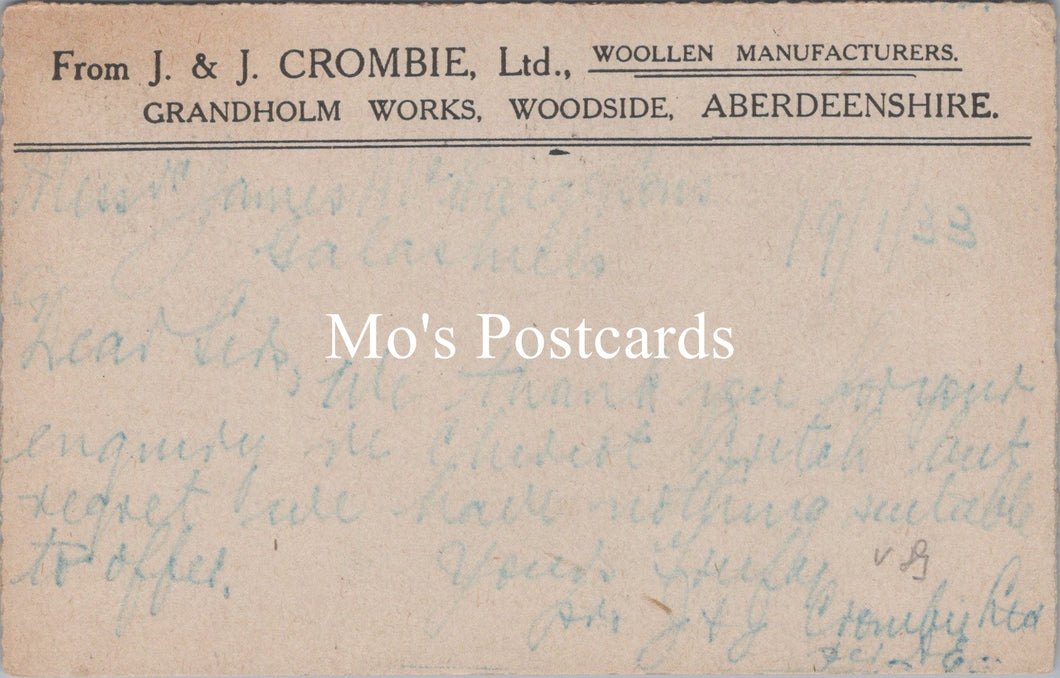 From J. & J. CROMBIE, Ltd., WOOLLEN MANUFACTURERS.
GRANDHOLM WORKS, WOODSIDE, ABERDEENSHIRE.
Messrs James Sons
Galashiels 19/1/33
Dear Sirs,
Mo's Postcards
We thank you for your
enquiry re Cheviot but
regret we have nothing suitable
to offer. Yours truly
pr. J & J Crombie Ltd